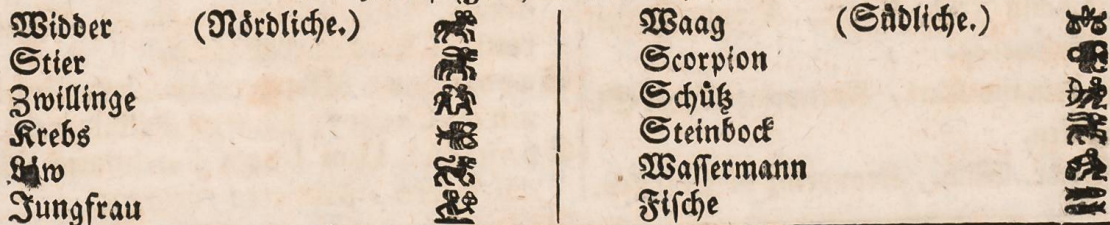 Widder (Nördliche.)
Stier
Zwillinge
Krebs
Jungfrau
Waag (Südliche.)
Scorpion
Schütz
Steinbock
Wassermann
Fische